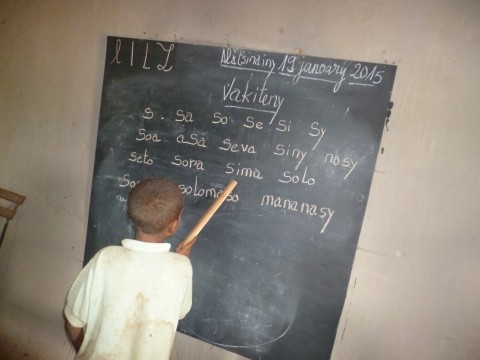 l I L L
Alatsinainy 19 janoary 2015
Vakiteny
s - sa so se si sy
soa asa seva siny nosy
seto sora sima solo
solomaso mananasy